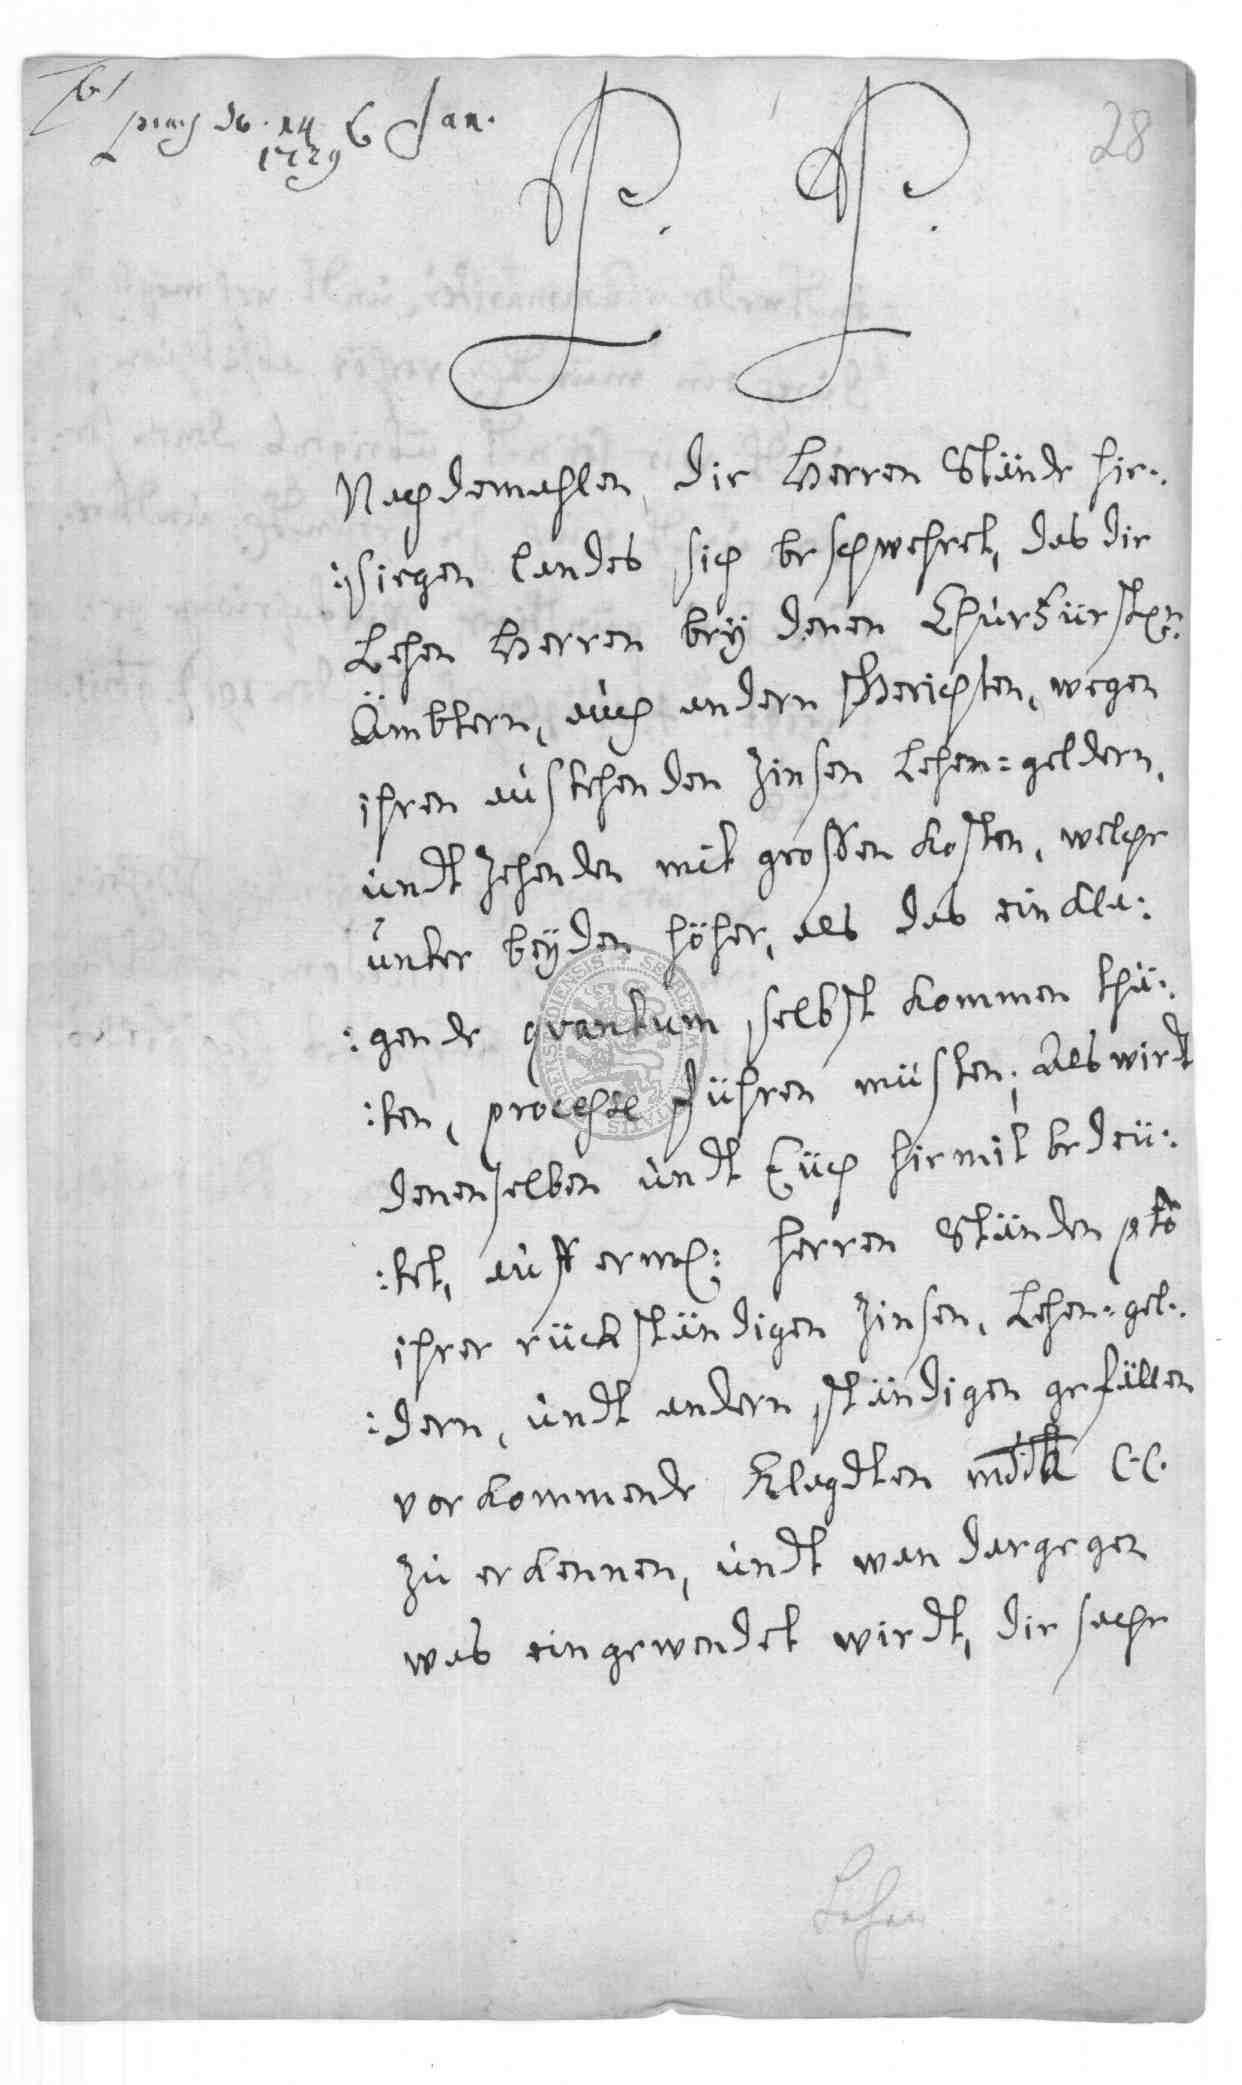 Jan.
1729
28
P. P.
Nachdemahlen, die Herren Stände hie:
:siegen Landes sich beschwehret, das die
Lehen Herren beÿ denen Churfürsten:
Ämbtern, auch andern Gerichten, wegen
ihren austehenden Zinsen Lehen=geldern,
undt Zehenden mit grossen Kosten, welche
unter beÿden höher, als das einkla:
:gende quantum selbst kommen thä:
:ten, processe führen müsten; Als wirdt
denenselben undt Euch hiermit bedeü:
:tet, auff erwch: Herren Ständen pto
ihrer rückständigen Zinsen, Lehen=gel:
:dern, undt andern ständigen gefällen
vorkommende Klagdten C. C.
zu erkennen, undt wan dargegen
was eingewendet wirdt, die sache
Lehen
SECRETA